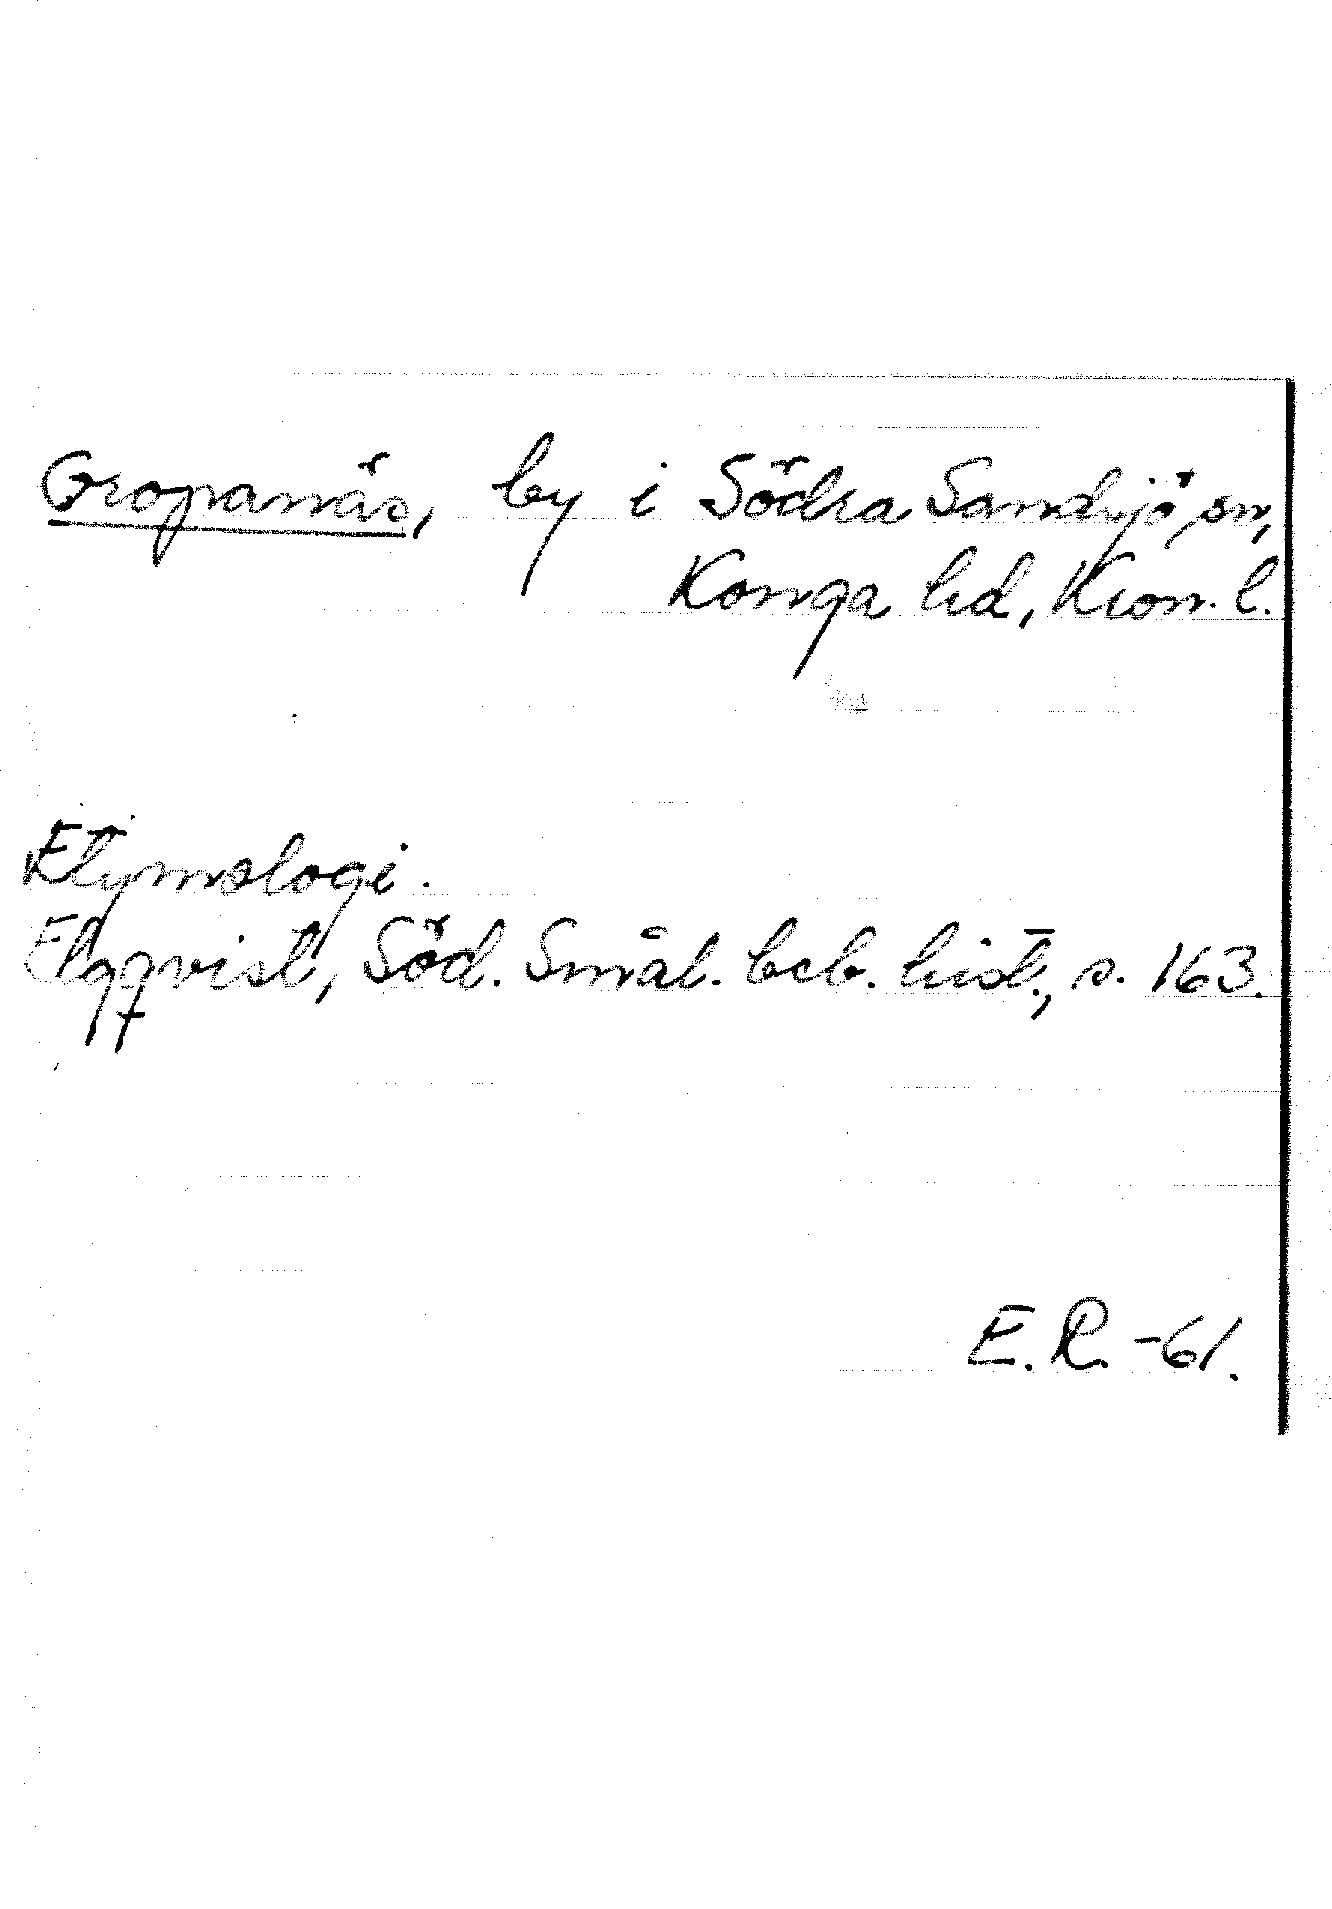 Gropanäs, by i Södra Sandsjö sn,
Konga hd, Kron. l.
Etymologi.
Elgqvist, Söd. Smål. beb. hist., s. 163.
E. R. -61.